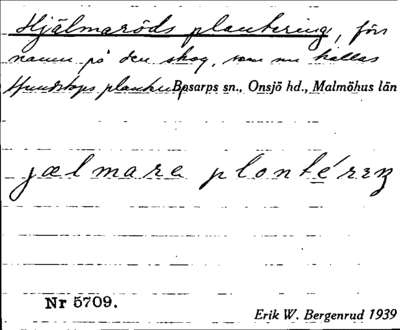 Hjälmaröds plantering, förr
namn på den skog, som nu kallas
Hundstops plantering Bosarps sn., Onsjö hd., Malmöhus län
jælmara plontérıŋ
Nr 5709.
Erik W. Bergenrud 1939